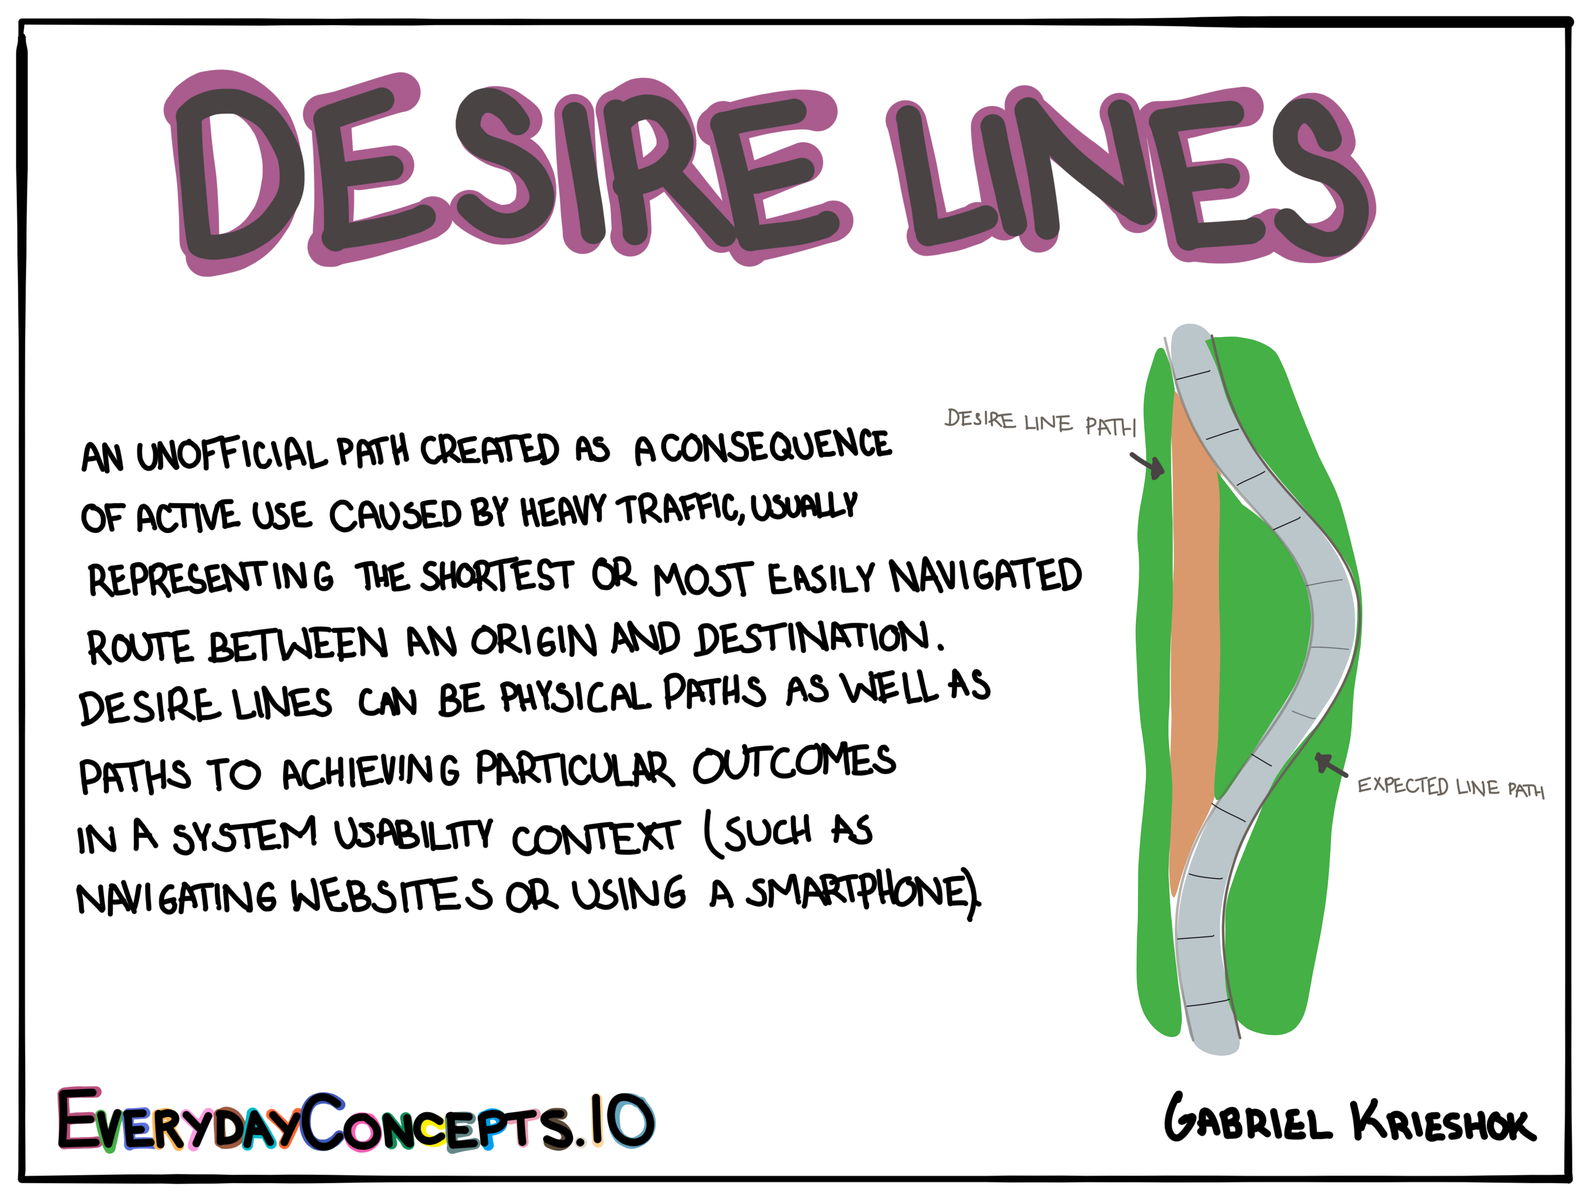 DESIRE LINES
AN UNOFFICIAL PATH CREATED AS A CONSEQUENCE
OF ACTIVE USE CAUSED BY HEAVY TRAFFIC, USUALLY
REPRESENTING THE SHORTEST OR MOST EASILY NAVIGATED
ROUTE BETWEEN AN ORIGIN AND DESTINATION.
DESIRE LINES CAN BE PHYSICAL PATHS AS WELL AS
PATHS TO ACHIEVING PARTICULAR OUTCOMES
IN A SYSTEM USABILITY CONTEXT (SUCH AS
NAVIGATING WEBSITES OR USING A SMARTPHONE).
DESIRE LINE PATH
EXPECTED LINE PATH
EVERYDAYCONCEPTS.IO
GABRIEL KRIESHOK